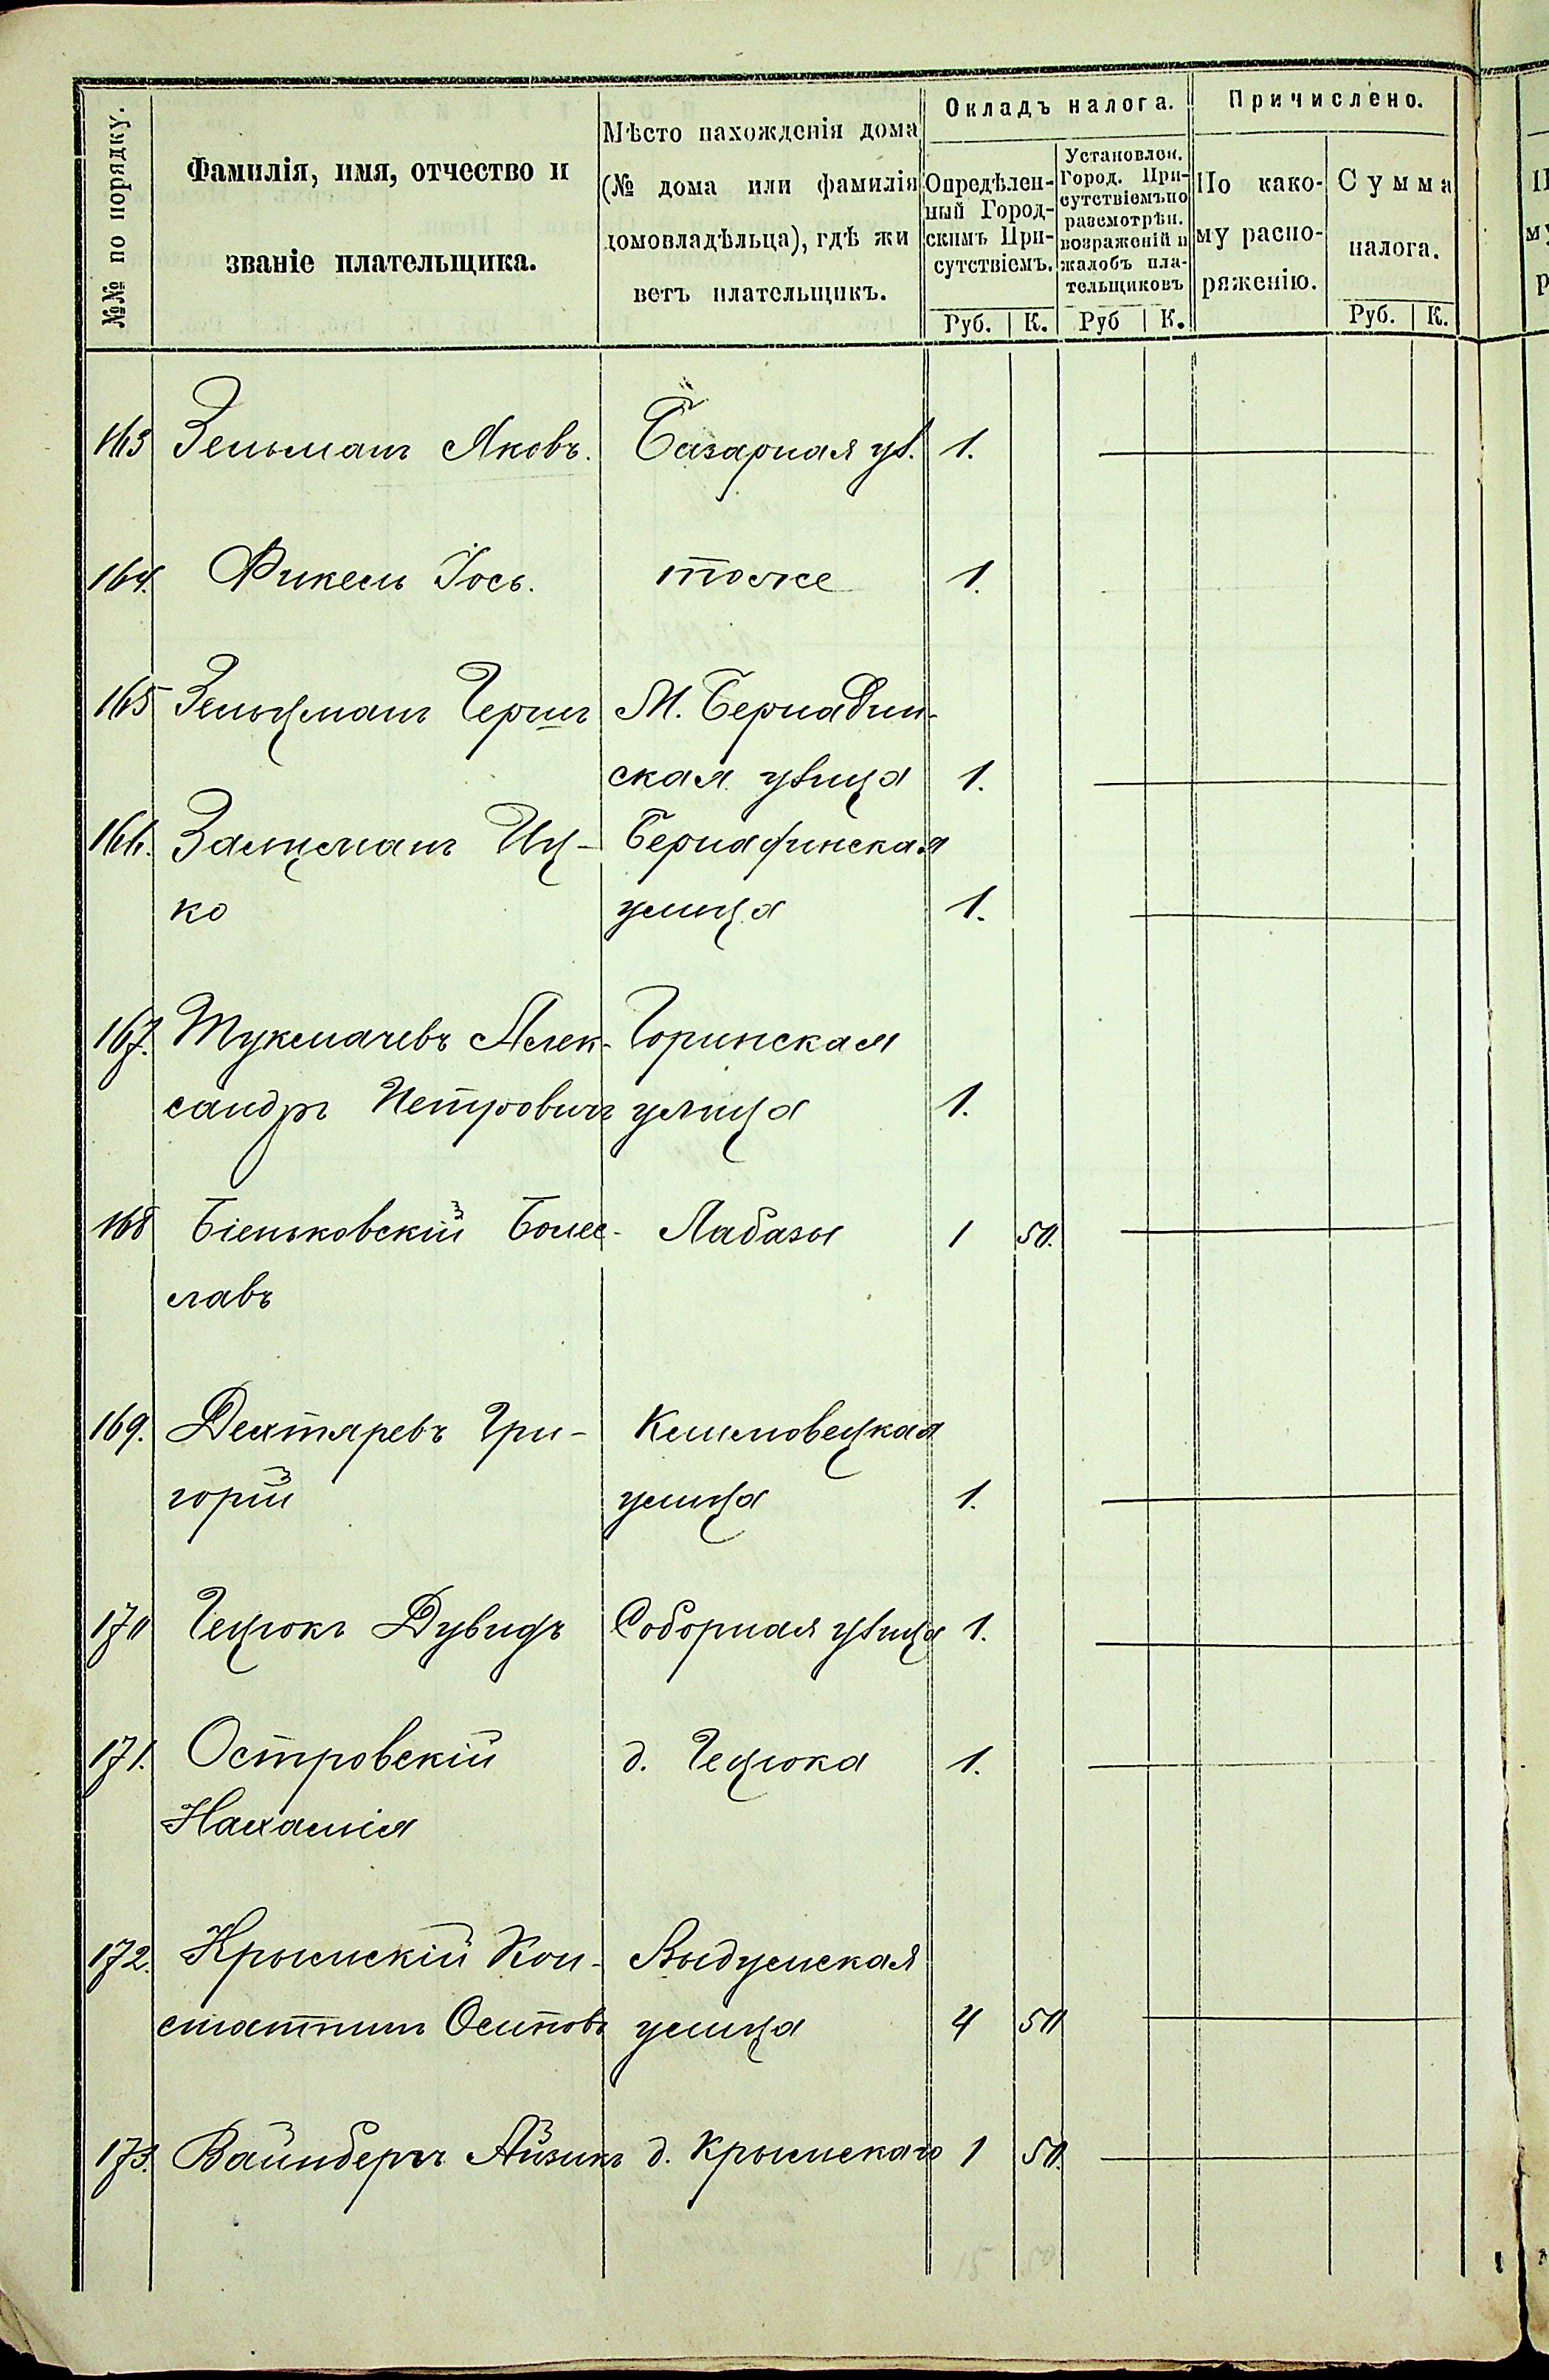 №№ по порядку.
Фамилія, имя, отчество и
званіе плательщика.
Мѣсто нахожденія дома
(№ дома или фамилія
домовладѣльца), гдѣ жи
ветъ плательщикъ.
Окладъ налога.
Опредѣлен-
ный Город-
скимъ При-
сутствіемъ.
Установлен.
Город. При-
сутствіемъ по
разсмотрѣн.
возраженій и
жалобъ пла-
тельщиковъ
Причислено.
По како-
му распо-
ряженію.
Сумма
налога.
Руб. К. Руб К. Руб. К.
163 Зельманъ Яковъ. Базарная ул. 1.
164. Фикель Іось. тоже 1.
165 Зельцманъ Гершъ М. Бернадин-
ская улица 1.
166. Залцманъ Иц- Бернадинская
ко улица 1.
167. Тукмачевъ Алек- Горинская
сандръ Петровичъ улица 1.
168 БіеньковскійБоле- Лабазы 1 50.
славъ
169. Дехтяревъ Гри- Климовецкая
горій улица 1.
170 Гецюкъ Дувидъ Соборная улица 1.
171. Островскій д. Гецюка 1.
Нахамія
172. Крымскій Кон- Выдумская
стантинъ Осиповъ улица 4 50
173. Вайнбергъ Айзикъ д. Крымскаго 1 50.